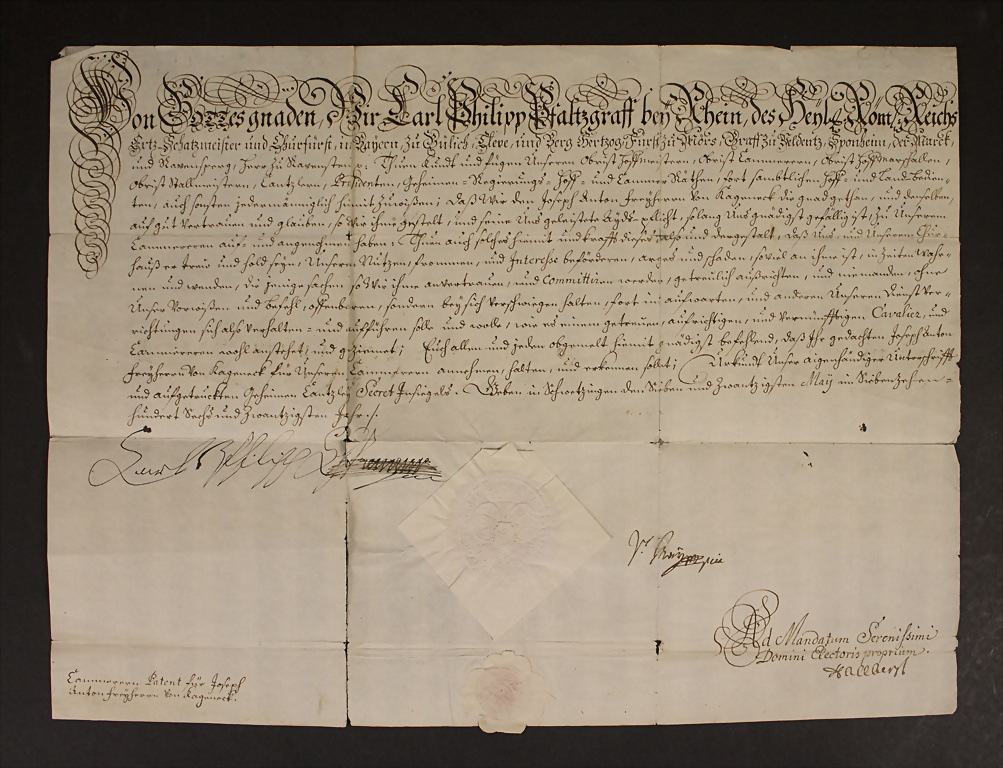 Von Gottes gnaden, Wir Carl Philipp Pfaltzgraff bey Rhein, des Heyl. Röm. Reichs
Ertz-Schatzmeister und Churfürst, in Bayern, zu Gülich, Cleve, und Berg Hertzog, Fürst zu Mörs, Graff zu Veldentz, Sponheim, der Marck,
und Ravensperg, Herr zu Ravenstein, Thun Kundt und fügen Unseren Obrist Hoffmeistern, Obrist Cammereren, Obrist Hoffmarschallen,
Obrist Stallmeistern, Cantzlern, Præsidenten, Geheimen- Regierungs- Hoff- und Cammer Räthen, fort sambtlichen Hoff- und Land bedien-
ten, auch sonsten jedermänniglich hiemit zu wißen; daß Wir dem Joseph Anton Freyherrn von Kageneck die gnad gethan, und denselben,
auf gut vertrauen und glauben, so Wir ihme gestelt, und seine Uns geleistete Eyds pflicht, solang Uns gnädigst gefällig ist, zu Unserem
Cammereren auf- und angenohmen haben, Thun auch solches hiemit und krafft dieses also und dergestalt, daß Uns, und Unserem Chur-
hauß er treu und hold seyn, Unseren Nutzen, frommen, und Interesse beförderen, arges und schaden, soviel an ihme ist, in zeiten war-
nen und wenden, die jenige sachen so Wir ihme anvertrauen, und Committiren werden, getreulich außrichten, und niemanden, ohne
Unser Vorwißen und befehl, offenbaren, sondern bey sich verschwiegen halten, fort im aufwarten, und anderen Unseren dienst ver-
richtungen sich also verhalten- und aufführen solle und wolle, wie es einem getreuen, aufrichtigen, und vernünfftigen Cavalier, und
Cammereren wohl anstehet, und geziemet; Euch allen und jeden obgemelt hiemit gnädigst befehlend, daß Ihr gedachten Joseph Anton
Freyherrn von Kageneck für Unseren Cammereren annehmen, halten, und erkennen sollet; Urkundt Unser aigenhändiger Unterschrifft
und aufgetruckten Geheimen Cantzley Secret Insiegels. Geben in Schwetzingen den Sieben und Zwantzigsten May im Siebenzehen-
hundert Sechs und Zwantzigsten Jahr.
Carl Philipp Churfürst
Ad Mandatum Serenissimi
Domini Electoris proprium.
Cammerern Patent für Joseph
Anton Freyherrn von Kageneck.